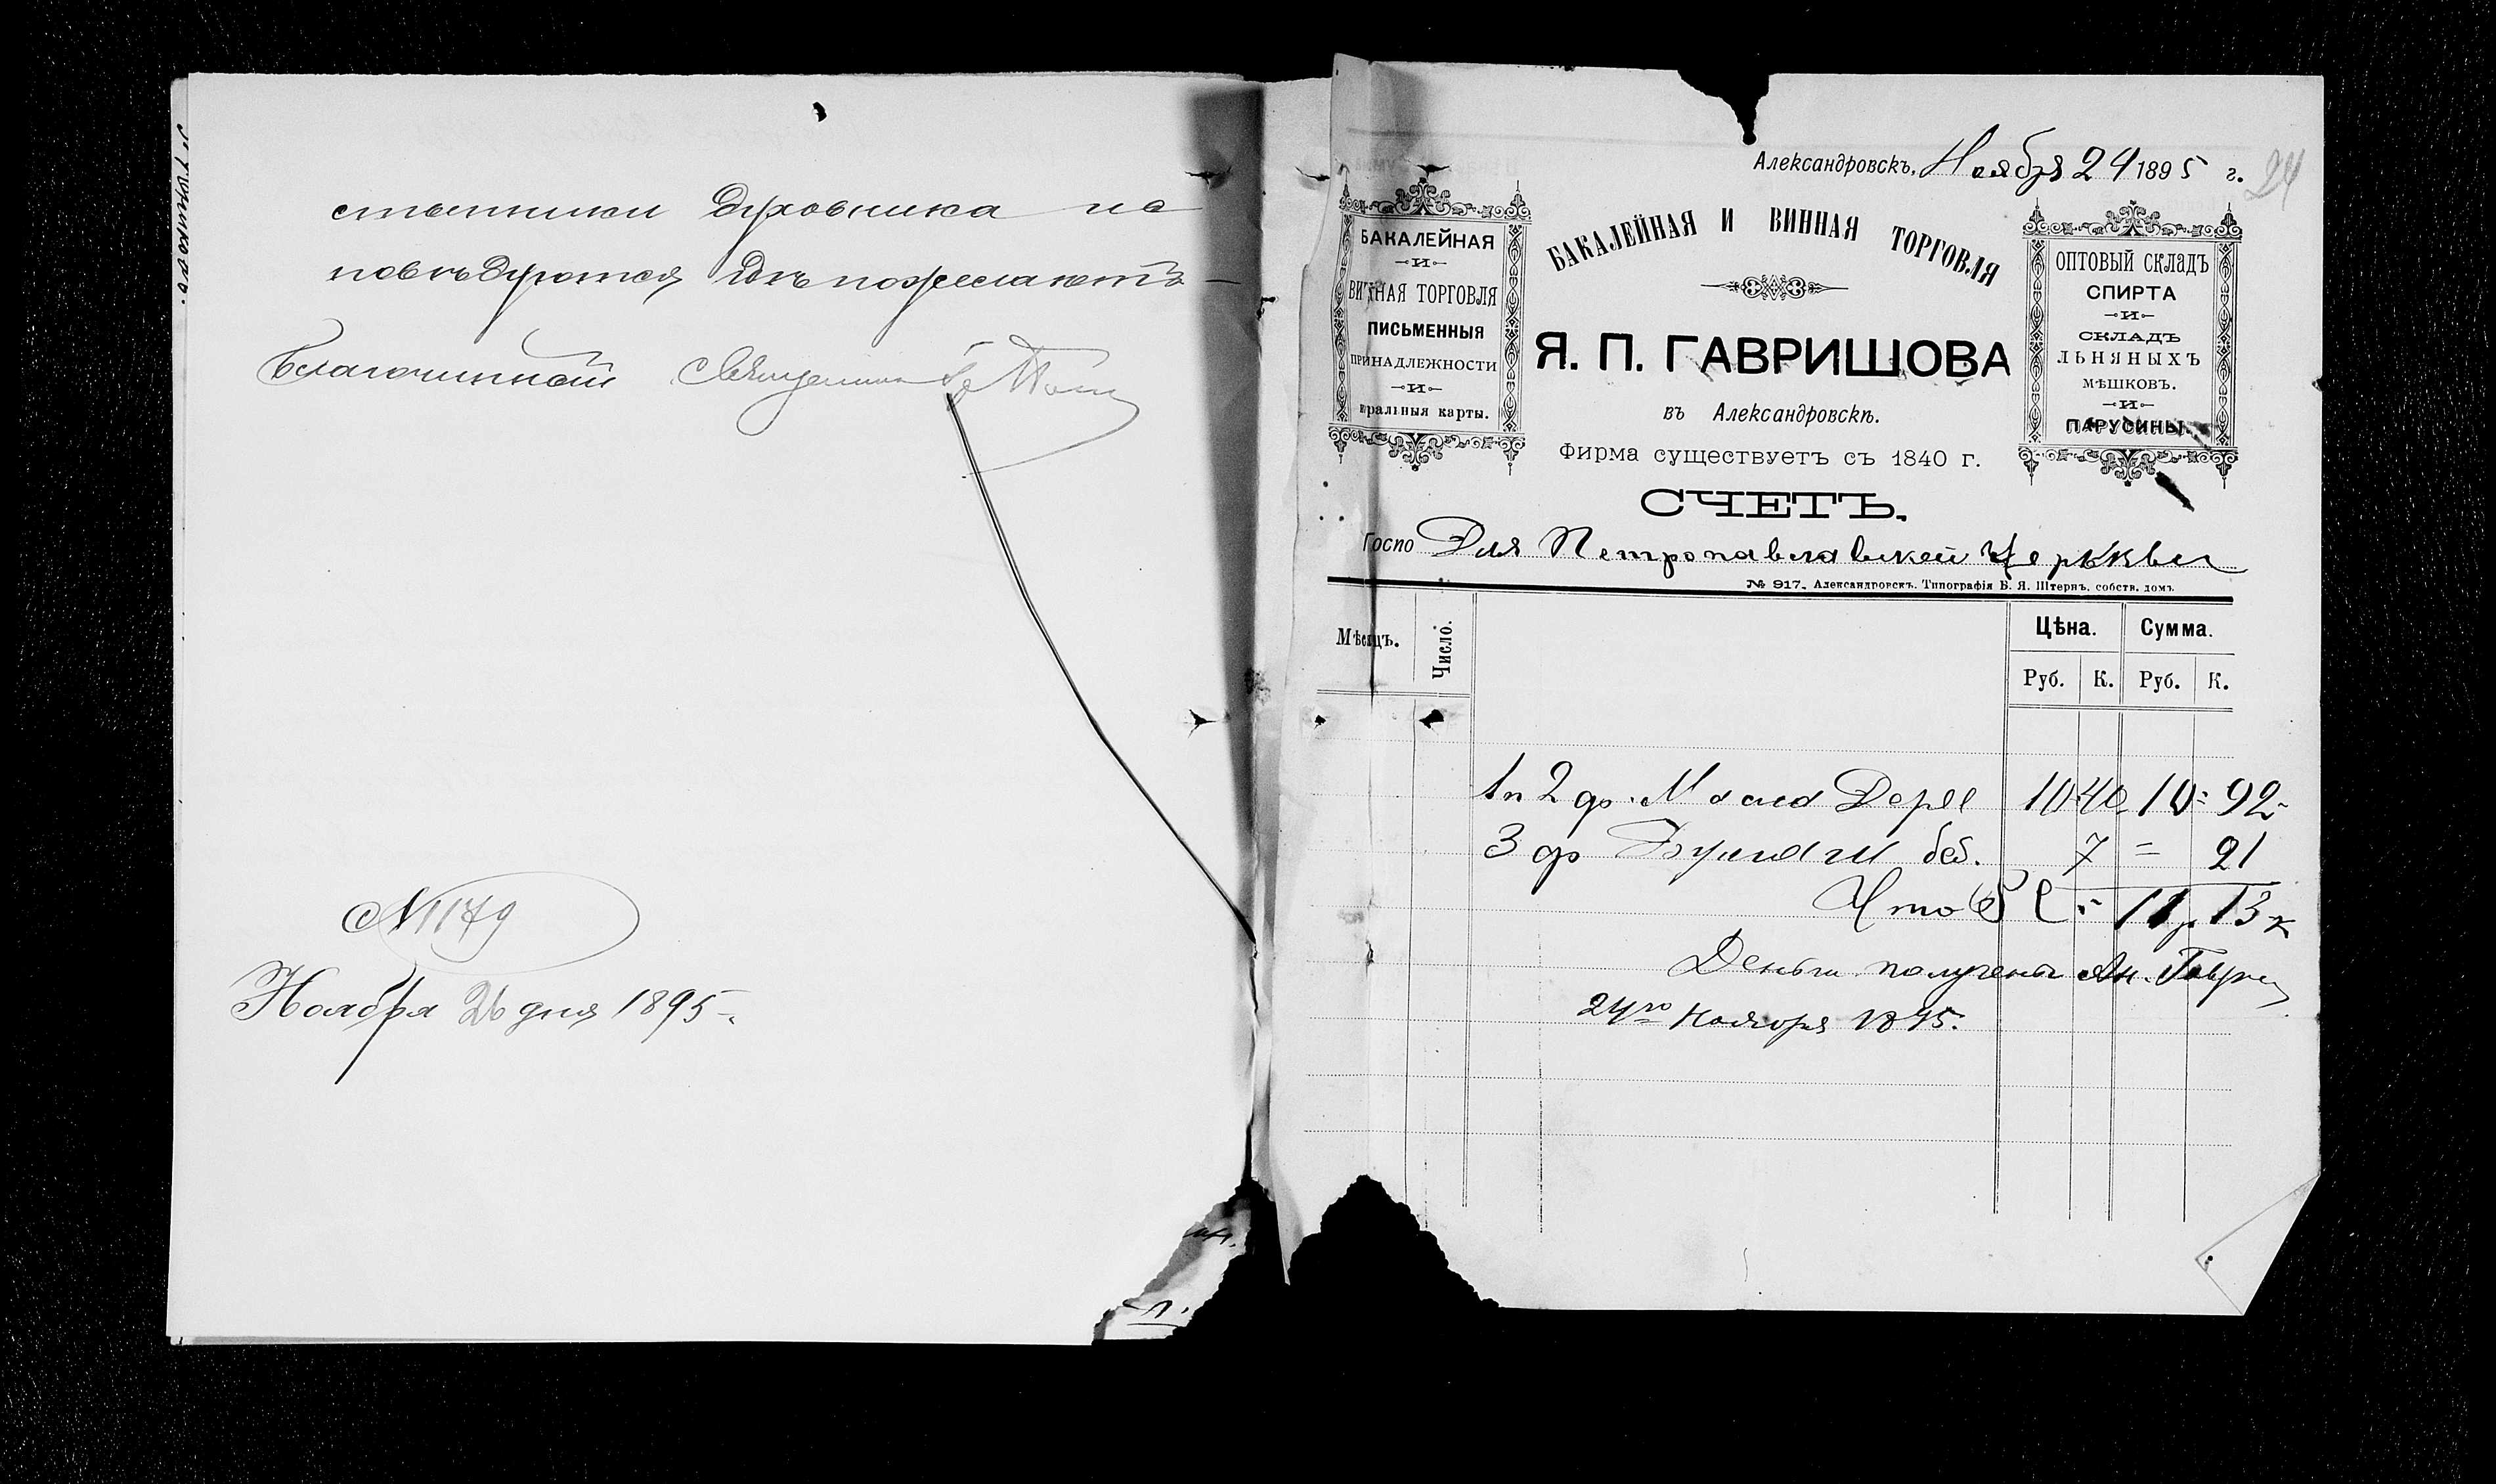 духовника
Благочинный Священник
№ 1179
Ноября 26 дня 1895
Александровскъ, Ноября 24 1895 г.
24
БАКАЛЕЙНАЯ
И
ВИННАЯ ТОРГОВЛЯ
ПИСЬМЕННЫЯ
ПРИНАДЛЕЖНОСТИ
И
игральныя карты.
БАКАЛЕЙНАЯ И ВИННАЯ ТОРГОВЛЯ
Я. П. ГАВРИШОВА
въ Александровскѣ.
Фирма существуетъ съ 1840 г.
ОПТОВЫЙ СКЛАДЪ
СПИРТА
И
СКЛАДЪ
ЛЬНЯНЫХЪ
МѢШКОВЪ.
И
ПАРУСИНЫ.
СЧЕТЪ.
Госпо Для Петропавлавской Церкквы
№ 917. Александровскъ. Типографія Б. Я. Штернъ, собств. домъ.
Мѣсяцъ. Число. Цѣна. Сумма.
Руб. К. Руб. К.
1 п 2 ф. Масла Дере 10 40 10 = 92
3 ф бумаги 7 = 21
11 р 13 к
Деньги получены Ан. Гаври
24го Ноября 1895.